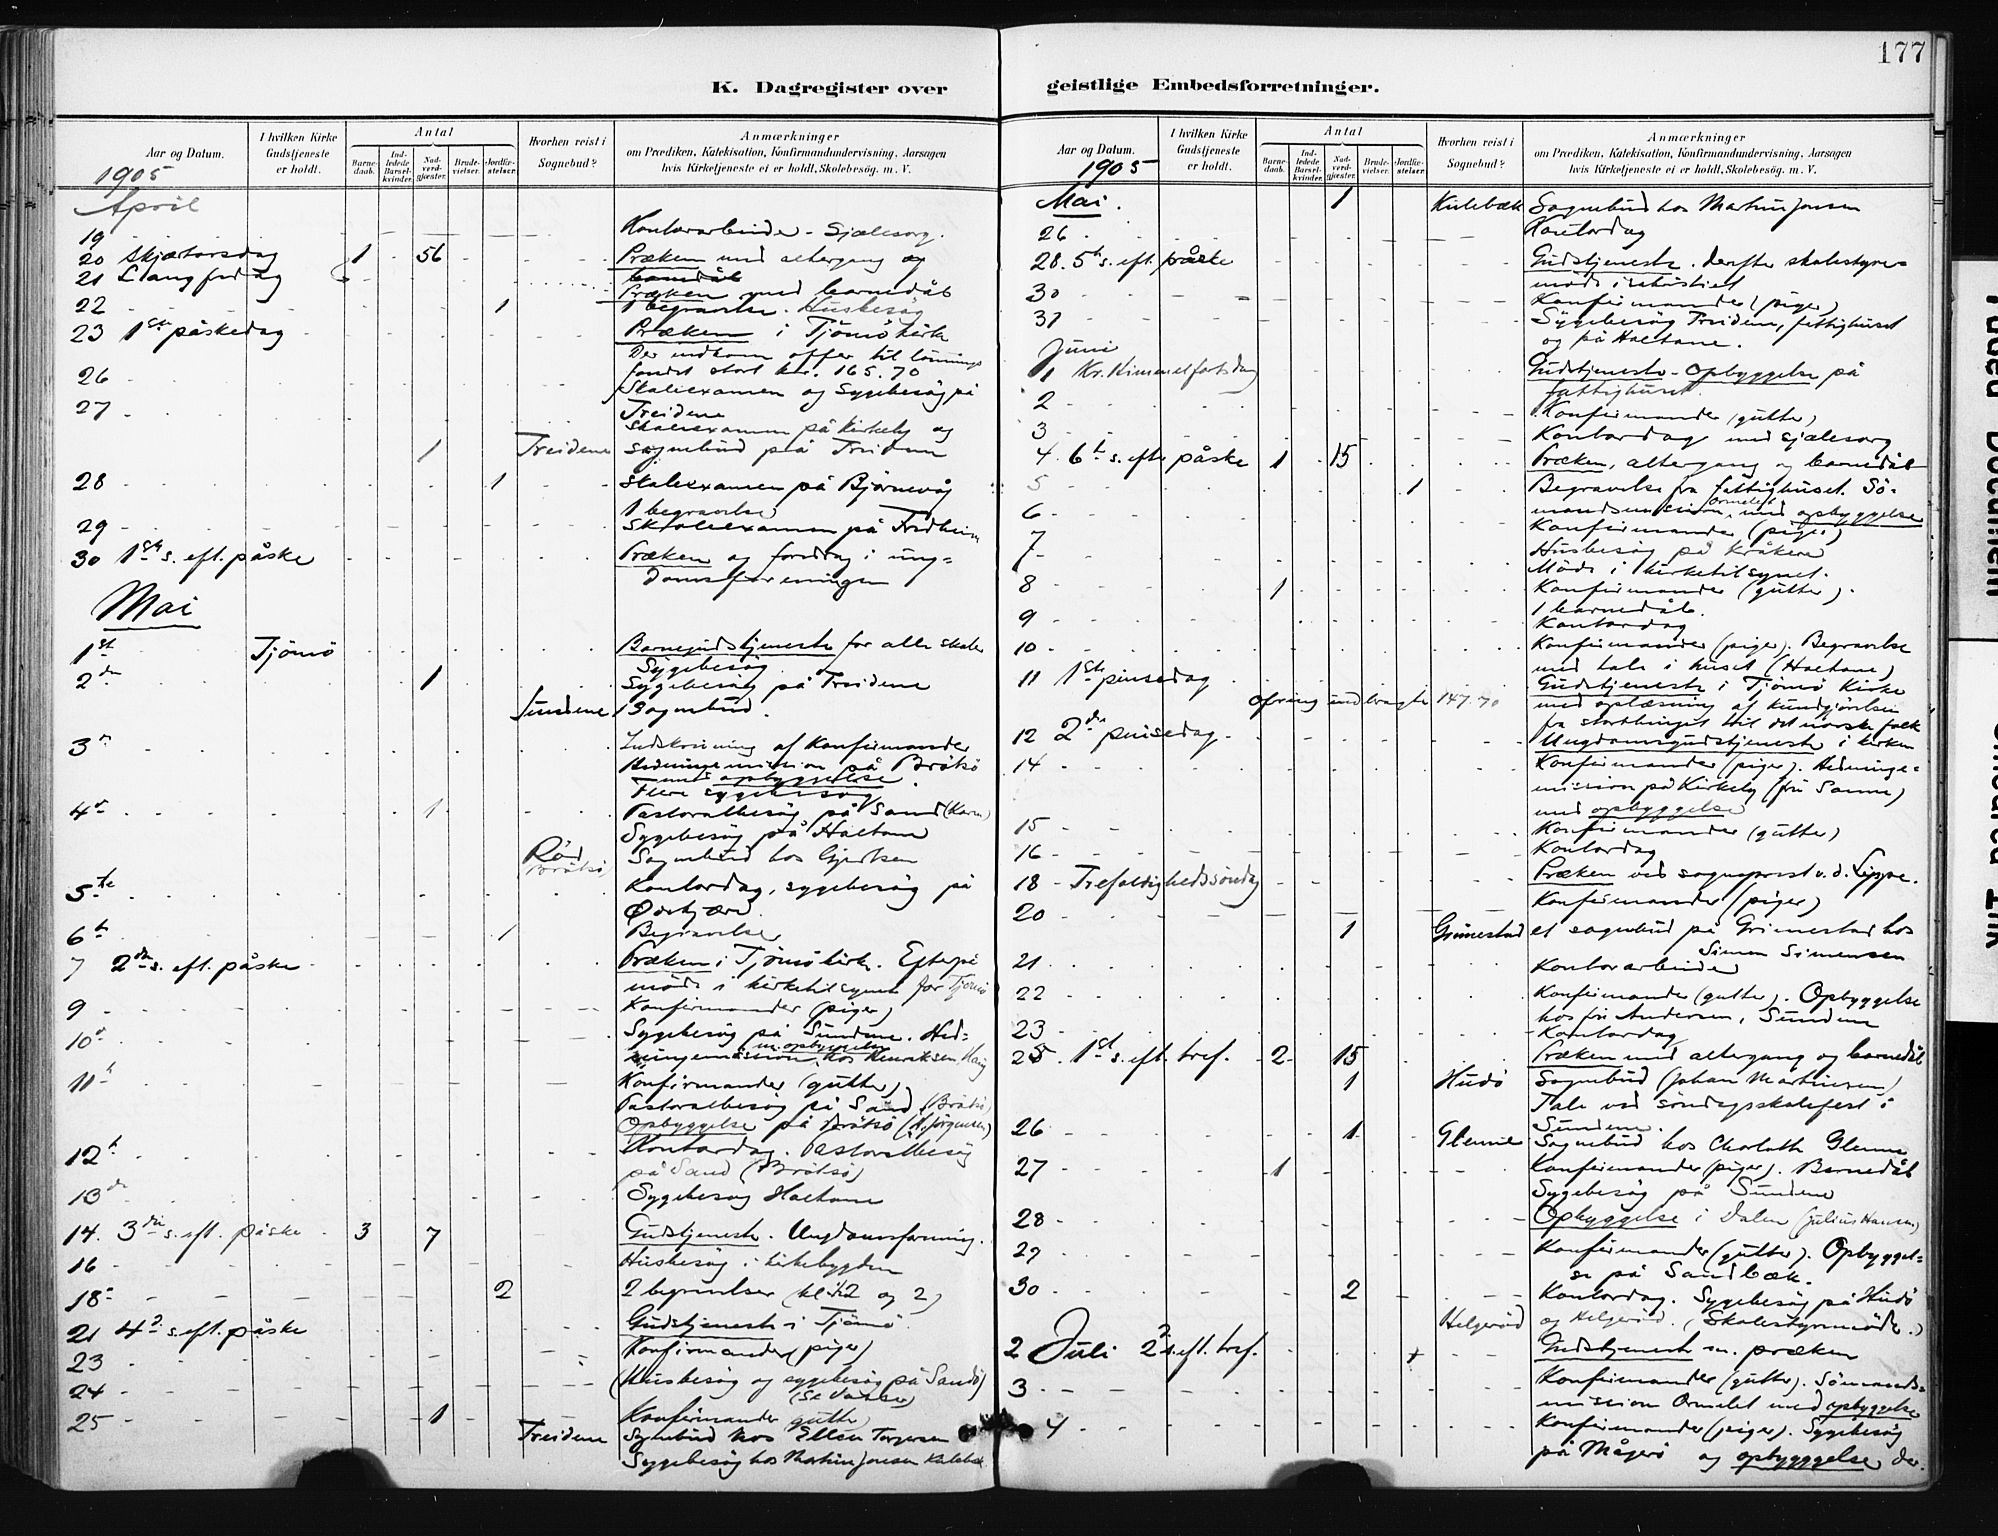 177
K. Dagregister over geistlige Embedsforretninger.
Aar og Datum.
I hvilken Kirke Gudstjeneste er holdt.
Antal
Barnedaab.
Indledede Barselkvinder.
Nadverdgjæster.
Brudevielser.
Jordfæstelser.
Hvorhen reist i Sognebud?
Anmærkninger
om Prædiken, Katekisation, Konfirmandundervisning, Aarsagen
hvis Kirketjeneste ei er holdt, Skolebesøg. m. V.
1905
April
19 Kontorarbeide - Sjælesorg.
20 Skjærtorsdag 1 56 Præken med altergang og
barnedåb
21 Langfredag Præken med barnedåb
22 1 1 begravelse. Husbesøg
23 1ste påskedag Præken i Tjømø kirke
Der indkom offer til lønnings
fondet stort kr. 165.70
26 Skoleexamen og Sygebesøg på
Treidene
27 Skoleexamen på Kirkeby og
1 Treidene sognebud på Treidene
28 1 Skoleexamen på Bjørnevåg
1 begravelse
29 Skoleexamen på Fredheim
30 1ste s. eft. påske Præken og foredrag i ung=
domsforeningen
Mai
1st Tjømø Barnegudstjeneste for alle skoler
Sygebesøg
2den 1 Sygebesøg på Treidene
Sundene 1 Sognebud.
3 Indskrivning af Konfirmander
Hedningemission på Bråtsø
med opbyggelse
Flere sygebesøg
4 1 Pastoralbesøg på Sand
Sygebesøg på Haltane
Rød
Bråtsø Sognebud hos Gjertsen
5te Kontordag, sygebesøg på
6t 1 Begravelse
7 2den s. eft. påske Præken i Tjømø kirke. Efterpå
møde i kirketilsynet for Tjømø
9 Konfirmander (piger)
10 Sygebesøg på Sundene. Hed=
m. opbyggelse
ningemission hos Henriksen
11t Konfirmander (gutter)
Pastoralbesøg på Sand (Bråtsø)
Opbyggelse på Bråtsø (A. Jørgensen)
12t Kontordag. Pastoralbesøg
på Sand (Bråtsø)
13de Sygebesøg Haltane
14. 3die s. eft. påske 3 7 Gudstjeneste. Ungdomsforening.
16 Husbesøg i kirkebygden
18 2 2 begravelser (kl. 12 og 2)
21 4de s. eft. påske Gudstjeneste i Tjømø
23 Konfirmander (piger)
24 (Husbesøg og sygebesøg på Sandø)
25 1 Konfirmander gutter
Treidene Sognebud hos Ellen Torgersen
Sygebesøg hos Martin Jensen
K. Dagregister over geistlige Embedsforretninger.
Aar og Datum.
I hvilken Kirke Gudstjeneste er holdt.
Antal
Barnedaab.
Indledede Barselkvinder.
Nadverdgjæster.
Brudevielser.
Jordfæstelser.
Hvorhen reist i Sognebud?
Anmærkninger
om Prædiken, Katekisation, Konfirmandundervisning, Aarsagen
hvis Kirketjeneste ei er holdt, Skolebesøg. m. V.
1905
Mai. 1 Kulebæk Sognebud hos Martin Jensen
26 Kontordag
28. 5te s. eft. påske Gudstjeneste. Derefter skolestyre=
møde i sakristiet
30 Konfirmander (piger)
31 Sygebesøg Treidene, fattighuset
og på Haltane.
Juni
1 Kr. Himmelfartsdag Gudstjeneste - Opbyggelse på
fattighuset.
2 Konfirmander (gutter)
3 Kontordag med sjælesorg
4. 6te s. efter påske 1 15 Præken, altergang og barnedåb
5 1 Begravelse fra fattighuset. Sø=
Ormelet
6 mandsmission med opbyggelse
Konfirmander (piger)
7 Husbesøg på Kråkere
Møde i kirketilsynet.
8 1 Konfirmander (gutter).
1 barnedåb.
9 Kontordag
10 Konfirmander (piger). Begravelse
med tale i huset (Haltane)
11 1ste pinsedag Gudstjeneste i Tjømø Kirke
Ofring indbragte 147.70 med oplæsning af kundgjørelsen
fra storthinget til det norske folk
12 2den pinsedag Ungdomsgudstjeneste i kirken
14 Konfirmander (piger). Hedninge=
mission på Kirkeby (fru Sanne)
med opbyggelse
15 Konfirmander (gutter)
16 Kontordag
18 Trefoldighedssøndag Præken ved sogneprest v. d. Lippe.
20 Konfirmander (piger)
1 Grimestad et sognebud på Grimestad hos
Simen Simensen
21 Kontorarbeide
22 Konfirmander (gutter). Opbyggelse
hos fru Andersen, Sundene
23 Kontordag
25 1st s. eft. tref. 2 15 Præken med altergang og barnedåb
1 Hudø Sognebud (Johan Martinsen)
Tale ved søndagsskolefest i
Sundene.
26 1 Glenne Sognebud hos Charlotte Glenne
27 1 Konfirmander (piger). Barnedåb
Sygebesøg på Sundene
28 Opbyggelse i Dalen (Julius Hansen)
29 Konfirmander (gutter). Opbyggel=
se på Sandbæk.
30 2 Kontordag. Sygebesøg på Hudø
Helgerød og Helgerød. (Skolestyremøde.)
2 Juli 2den s. eft. tref. Gudstjeneste m. præken
3 Konfirmander (gutter). Sømands=
mission Ormelet med opbyggelse
4 Konfirmander (piger). Sygebesøg
på Mågerø og opbygggelse der.